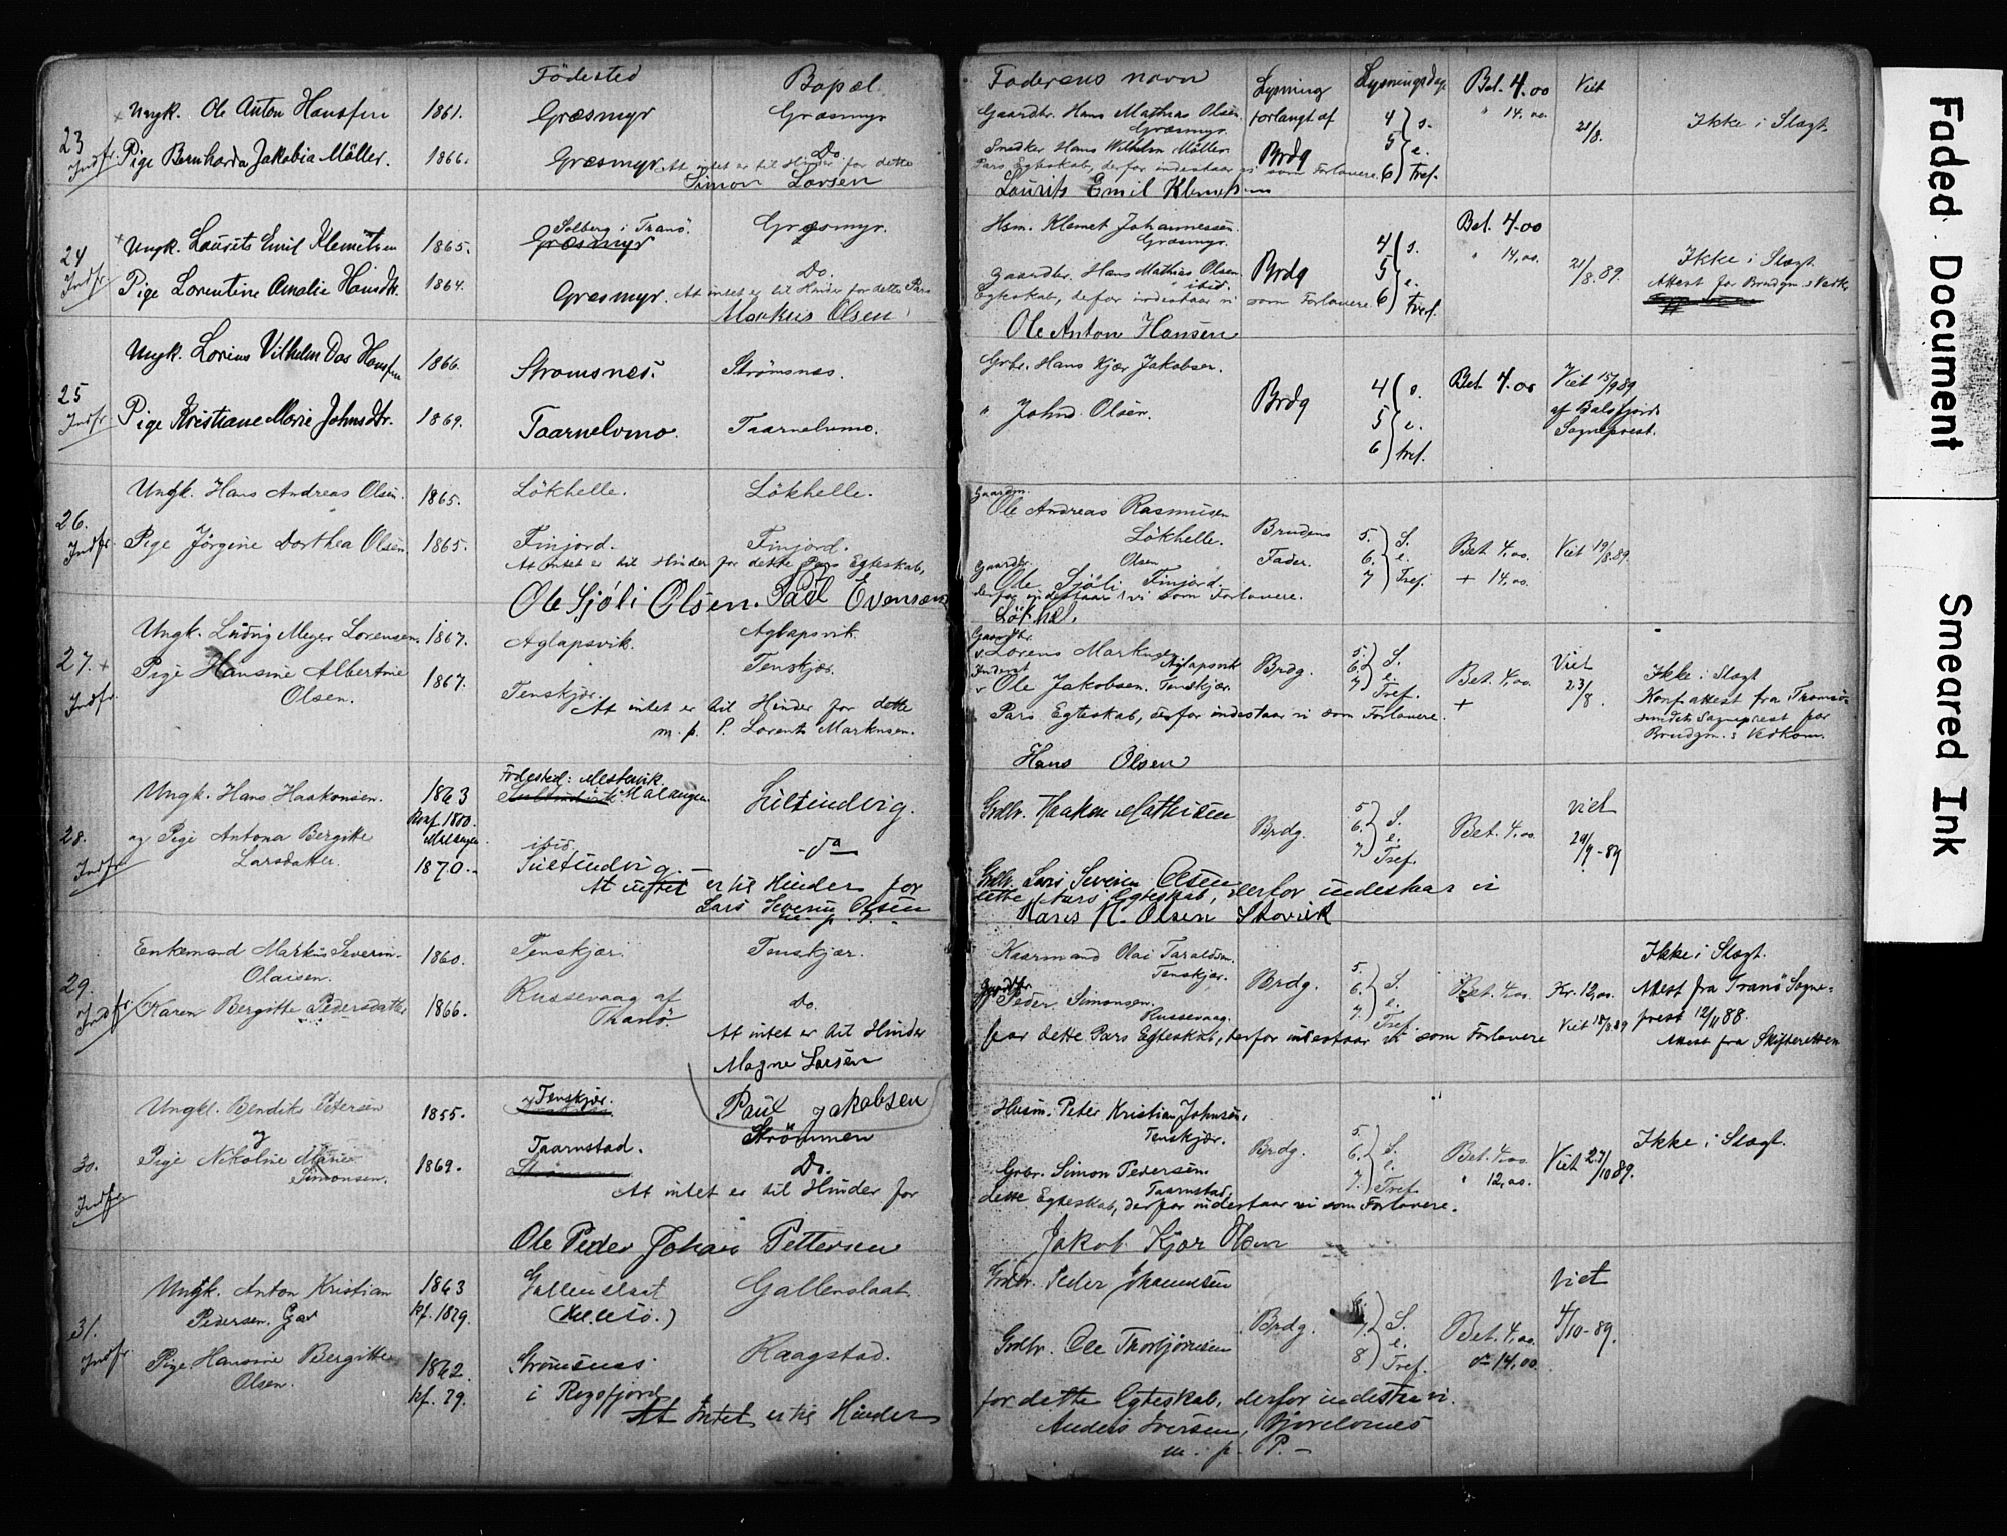 Födested Bopæl
Ungk. Ole Anton Hanssen 1861. Græsmyr Græsmyr
23
Indfr. Pige Bernharda Jakobia Möller. 1866. Græsmyr Do.
At intet er til Hinder for dette
Simon Larsen
Ungk. Laurits Emil Klemetsen 1865. Solberg i Tranö. Græsmyr.
Græsmyr
24
Indfr. Pige Lorentine Amalie Hansdtr. 1864. Græsmyr. Do.
At intet er til Hinder for dette Pars
Markus Olsen
Ungk. Lorius Vilhelm Das Hanssen 1866. Strømsnes. Strømsnæs.
25
Indfr. Pige Kristiane Marie Johnsdtr. 1869. Taarnelvmo. Taarnelvmo.
Ungk. Hans Andreas Olsen. 1865. Lökhelle. Lökhelle.
26.
Indfr. Pige Jörgine Dorthea Olsen. 1865. Finjord. Finjord.
At intet er til Hinder for dette Pars Egteskab,
Ole Sjöli Olsen. Paul Evensen
Ungk. Ludvig Meyer Lorensen. 1867. Aglapsvik. Aglapsvik.
27.
Indfr. Pige Hansine Albertine Olsen. 1867. Tenskjær. Tenskjær.
At intet er til Hinder for dette
m. p. P. Lorents Markusen.
Födested: Mestervik.
Ungk. Hans Haakonsen. 1863 Malangen
Konf. 1880. Malangen
28. og Pige Antona Bergitte
Indfr. Larsdatter. 1870. ibid.
At intet er til Hinder for
Lars Severin Olsen
m. p.
Enkemand Markus Severin Olaisen. 1860. Tenskjær. Tenskjær.
29.
Indfr. Karen Bergitte Pedersdatter 1866. Russevaag af Tranö. Do.
At intet er til Hinder
Magne Larsen
Paul Jakobsen
Ungkl. Bendiks Petersen 1855. Tenskjær. Strömmen
og
30. Pige Nikoline Marie Simonsen. 1869. Taarnstad. Do.
Indfr.
At intet er til Hinder for
Ole Peder Johan Pettersen
Ungk. Anton Kristian Pedersen. 1863 Gallenslaat Gallenslaat
kf. 1879.
31.
Indfr. Pige Hansine Bergitte Olsen. 1862. Strømsnes i Rossfjord Kaagstad.
kf. 79.
At Intet er til Hinder
Faderens navn Lysning Lysningsdage Bet. 4.00 Viet
Gaardbr. Hans Mathias Olsen. forlangt af 4 s. " 14.00
Græsmyr. 5 e. 21/8. Ikke i Slægt.
Snedker Hans Wilhelm Möller. Brdg 6 tref.
Pars Egteskab, derfor indestaar vi som Forlovere.
Laurits Emil Klemetsen
Hsm. Klemet Johannessen Bet. 4.00
Græsmyr. 4 s. " 14,00. Ikke i Slægt.
Gaardbr. Hans Mathias Olsen. Brdg 5 e. 21/8.89. Attest for Brudgm. s Vedk.
ibid. 6 tref.
Egteskab, derfor indestaar vi som Forlovere.
Ole Anton Hansen
Grbr. Hans Kjær Jakobsen. 4 s. Bet. 4.00 Viet 15/9 89
" John Olsen. Brdg 5 e. af Balsfjords
6 tref. Sogneprest.
Gaardm.
Ole Andreas Rasmusen
Lökhelle. Brudens 5. S.
Gaardbr. Olsen Fader. 6. e. Bet. 4.00. Viet 19/8.89.
Ole Sjöli Finjord. 7 Tref. + 14,00.
derfor indestaar vi som Forlovere.
Gaardbr.
Lorens Markusen 5. S.
Aglapsvik Brdg. 6. e. Bet. 4,00. Viet Ikke i Slægt
Inderst
Ole Jakobsen. Tenskjær. 7 Tref. + 23/8. Konf.attest fra Tromsö-
Pars Egteskab, derfor indestaar vi som Forlovere. sundets Sogneprest for
Brudgm.s Vedkom.
Hans Olsen
Grdbr. Haakon Mathisen 5. S. viet
Brdg. 6. e. Bet. 4,00. 29/9-89
7. Tref.
Grdbr. Lars Severin Olsen
dette Pars Egteskab, derfor indestaar vi
Hans N. Olsen Storvik
Kaarmand Olai Taraldsen. 5. S. Ikke i Slægt.
Tenskjær. Brdg. 6. e. Bet. 4,00. Kr. 12,00. Attest fra Tranö Sogne-
Gaardbr.
Peder Simonsen. 7. Tref. prest 12/11 88.
Russevaag.
for dette Pars Egteskab, derfor indestaar vi som Forlovere Attest fra Skifteretten
Husm. Peter Kristian Johnsen,
Tenskjær. 5. S. Ikke i Slægt.
Brdg. 6. e. Bet. 4,00. Viet 27/10 89.
Grbr. Simon Pedersen 7. Tref. " 12,00.
Taarnstad.
dette Egteskab, derfor indestaar vi som Forlovere.
Jakob Kjær Olsen
Grdbr. Peder Viet
Brdg. 7 S. Bet. 4,00. 4/10-89.
Grdbr. Ole Thorbjörnsen 8 e. Tref. do 14,00.
for dette Egteskab, derfor indestaa vi.
Anders Iversen, Bjorelvnes
m. p. P. —
Faded Document
Smeared Ink